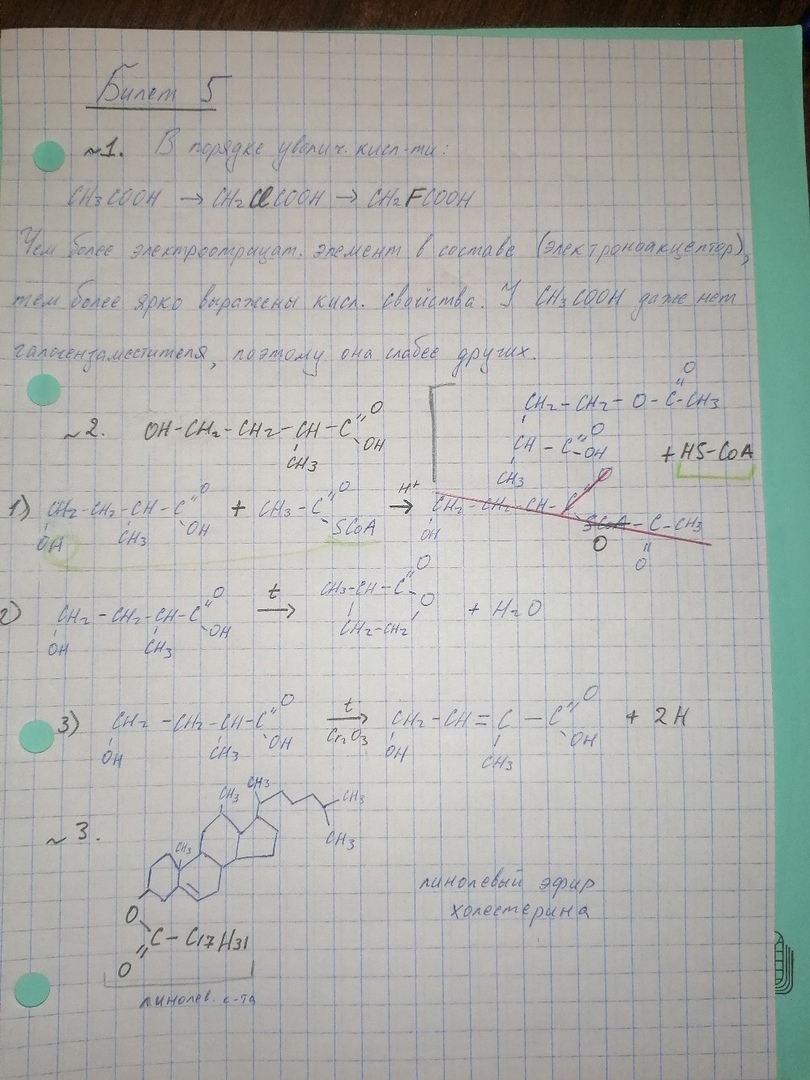 Билет 5
~1. В порядке увелич. кисл-ти:
CH3COOH → CH2ClCOOH → CH2FCOOH
Чем более электроотрицат. элемент в составе (электроноакцептор),
тем более ярко выражены кисл. свойства. У CH3COOH даже нет
галогензаместителя, поэтому она слабее других.
~2. OH-CH2-CH2-CH-C=O
OH
CH3
CH2-CH2-O-C-CH3
O
CH-C-OH
O
CH3
+ HS-CoA
1) CH2-CH2-CH-C=O + CH3-C=O → H+
OH CH3 OH SCoA
CH2-CH2-CH-C=O
OH
SCoA-C-CH3
O O
2) CH2-CH2-CH-C=O t → CH3-CH-C=O + H2O
OH CH3 OH
O
CH2-CH2
3) CH2-CH2-CH-C=O t → CH2-CH=C-C=O + 2H
Cr2O3
OH CH3 OH OH CH3 OH
~3.
CH3 CH3 CH3
CH3 CH3
линолевый эфир
холестерина
O
C-C17H31
O
линолев. к-та